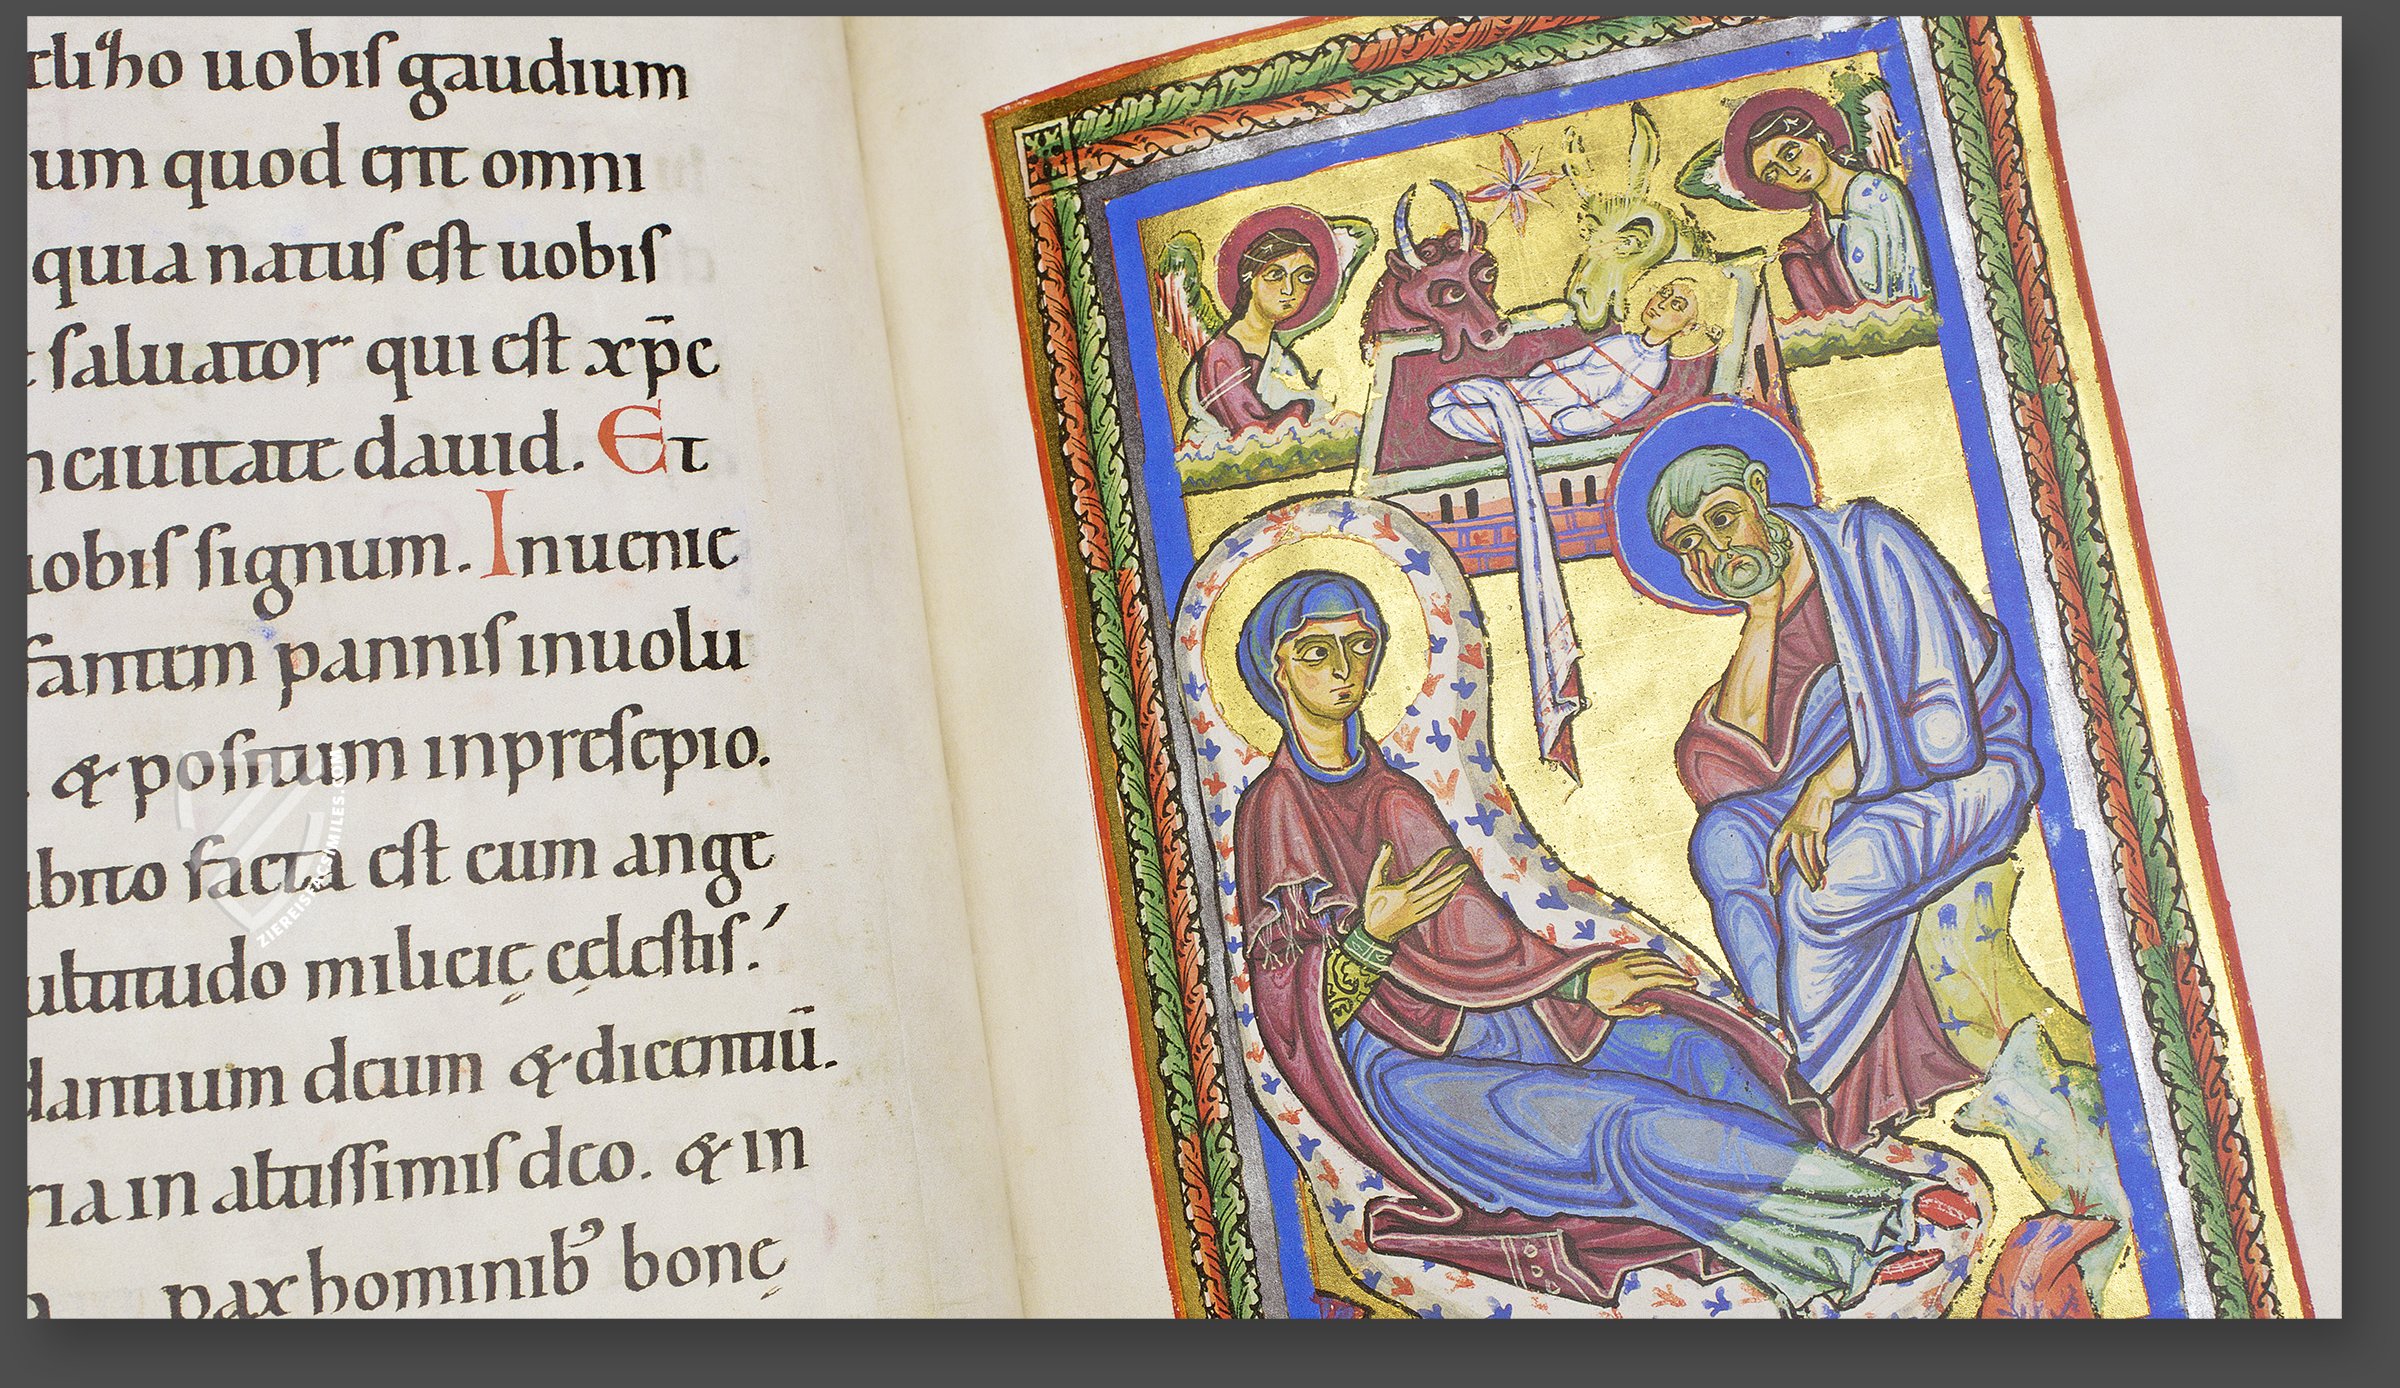 uobis gaudium
um quod erit omni
quia natus est uobis
saluator qui est xp̄c
ciuitate dauid. Et
uobis signum. Inuenie
fantem pannis inuolu
& positum inpresepio.
facta est cum ange
milicię cęlestis.
dantium deum & dicentiū.
ria in altissimis deo. & in
pax hominib' bonę
ZIEREIS FACSIMILES.COM